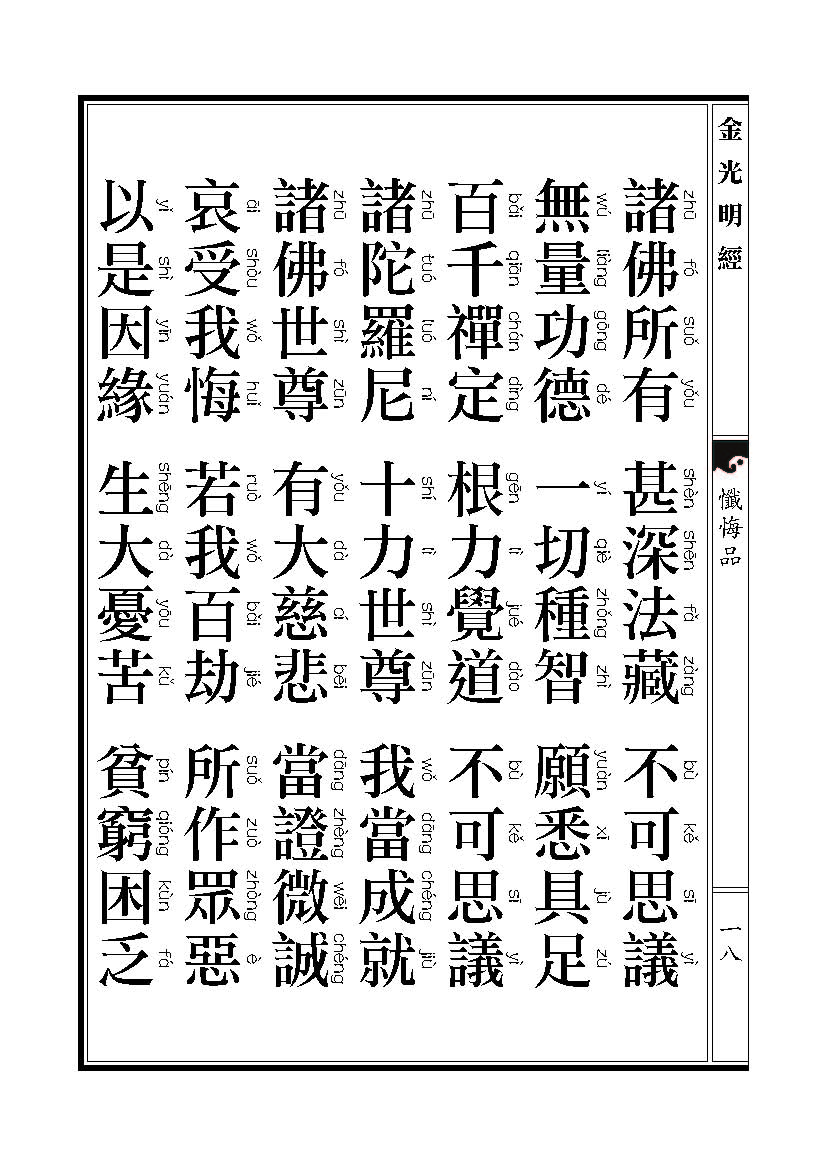 金光明經
懺悔品
一八
諸佛所有 甚深法藏 不可思議
zhū fó suǒ yǒu shèn shēn fǎ zàng bù kě sī yì
無量功德 一切種智 願悉具足
wú liàng gōng dé yí qiè zhǒng zhì yuàn xī jù zú
百千禪定 根力覺道 不可思議
bǎi qiān chán dìng gēn lì jué dào bù kě sī yì
諸陀羅尼 十力世尊 我當成就
zhū tuó luó ní shí lì shì zūn wǒ dāng chéng jiù
諸佛世尊 有大慈悲 當證微誠
zhū fó shì zūn yǒu dà cí bēi dāng zhèng wēi chéng
哀受我悔 若我百劫 所作眾惡
āi shòu wǒ huǐ ruò wǒ bǎi jié suǒ zuò zhòng è
以是因緣 生大憂苦 貧窮困乏
yǐ shì yīn yuán shēng dà yōu kǔ pín qióng kùn fá